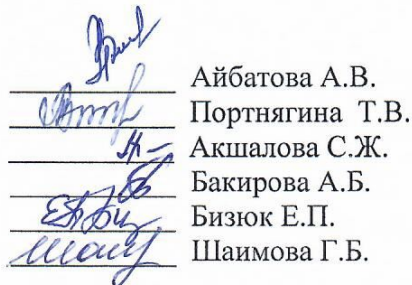 Айбатова А.В.
Портнягина Т.В.
Акшалова С.Ж.
Бакирова А.Б.
Бизюк Е.П.
Шаимова Г.Б.